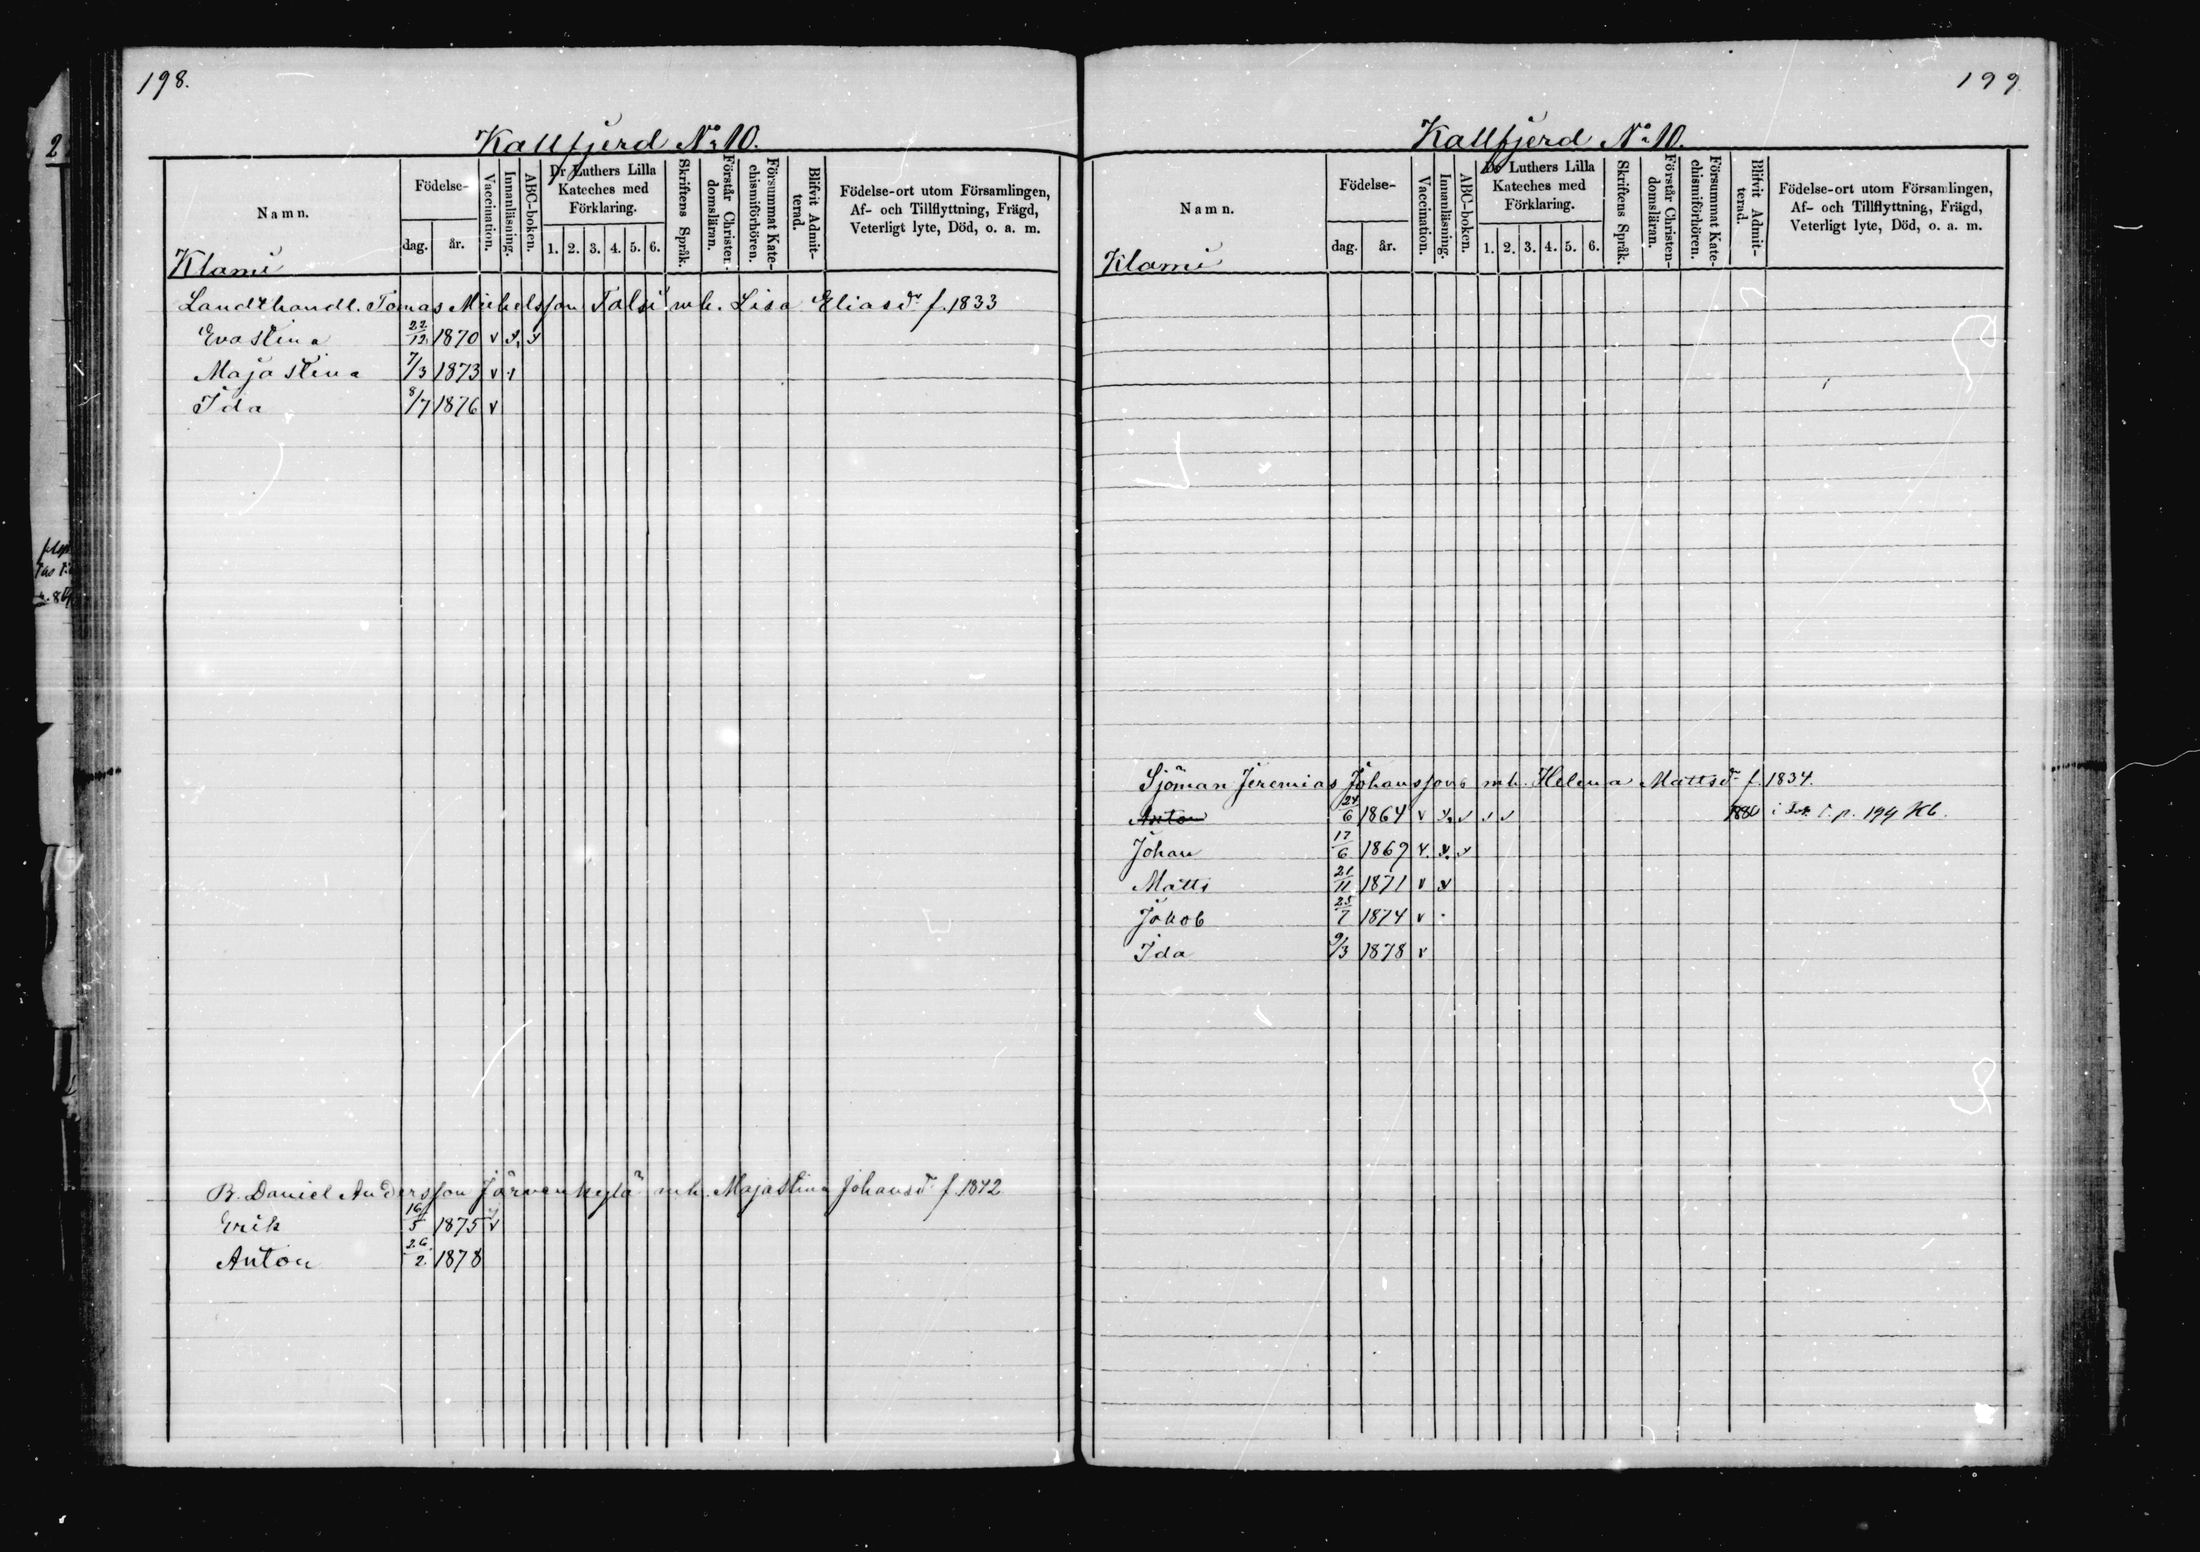 198.
Kallfjerd No 10.
Namn.
Födelse-
dag.
år.
Vaccination.
Innanläsning.
ABC-boken.
Dr Luthers Lilla
Kateches med
Förklaring.
1. 2. 3. 4. 5. 6.
Skriftens Språk.
Förstår Christen-
domsläran.
Försummat Kate-
chismiförhören.
Blifvit Admit-
terad.
Födelse-ort utom Församlingen,
Af- och Tillflyttning, Frägd,
Veterligt lyte, Död, o. a. m.
Klami
Landthandl. Tomas Michelsson Falsi mh. Lisa Eliasdr f. 1833
Evastina 22/12 1870 v
Majastina 7/3 1873 v
Ida 8/7 1876 v
B. Daniel Andersson Järvenkylä mh. Majastina Johansdr f. 1842
Erik 16/5 1875 v
Anton 26/2 1878
199
Kallfjerd No 10.
Namn.
Födelse-
dag.
år.
Vaccination.
Innanläsning.
ABC-boken.
Dr Luthers Lilla
Kateches med
Förklaring.
1. 2. 3. 4. 5. 6.
Skriftens Språk.
Förstår Christen-
domsläran.
Försummat Kate-
chismiförhören.
Blifvit Admit-
terad.
Födelse-ort utom Församlingen,
Af- och Tillflyttning, Frägd,
Veterligt lyte, Död, o. a. m.
Klami
Sjöman Jeremias Johansson mh. Helena Mattsdr f. 1834.
Anton 24/6 1864 v 1880 p. 199 Kb.
Johan 17/6 1869 v.
Matts 21/11 1871 v
Jakob 25/7 1874 v
Ida 9/3 1878 v